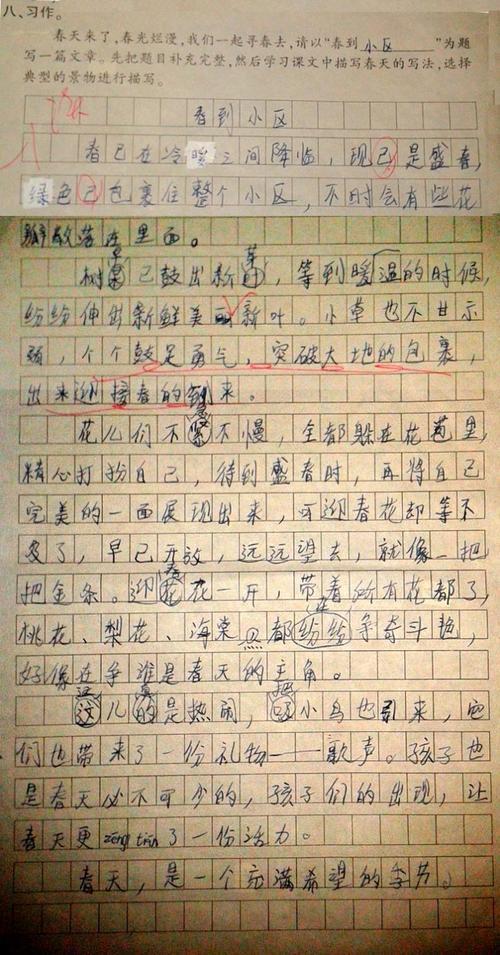 八、习作。
春天来了，春光烂漫，我们一起寻春去，请以“春到小区”为题
写一篇文章。先把题目补充完整，然后学习课文中描写春天的写法，选择
典型的景物进行描写。
春到小区
春已在冷暖之间降临，现已是盛春，
绿色已包裹住整个小区，不时会有些花
瓣散落在里面。
树已鼓出新芽，等到暖温的时候，
纷纷伸出新鲜美丽新叶。小草也不甘示
弱，个个鼓足勇气，突破大地的包裹，
出来迎接春的到来。
花儿们不急不慢，全都躲在花苞里，
精心打扮自己，待到盛春时，再将自己
完美的一面展现出来，可迎春花却等不
及了，早已开放，远远望去，就像一把
把金条。迎春花一开，带着所有花都了，
桃花、梨花、海棠都纷纷争奇斗艳，
好像在争谁是春天的主角。
这儿真是热闹，把小鸟也引来，它
们也带来了一份礼物——歌声。孩子也
是春天必不可少的，孩子们的出现，让
春天更zēng tiān了一份活力。
春天，是一个充满希望的季节。